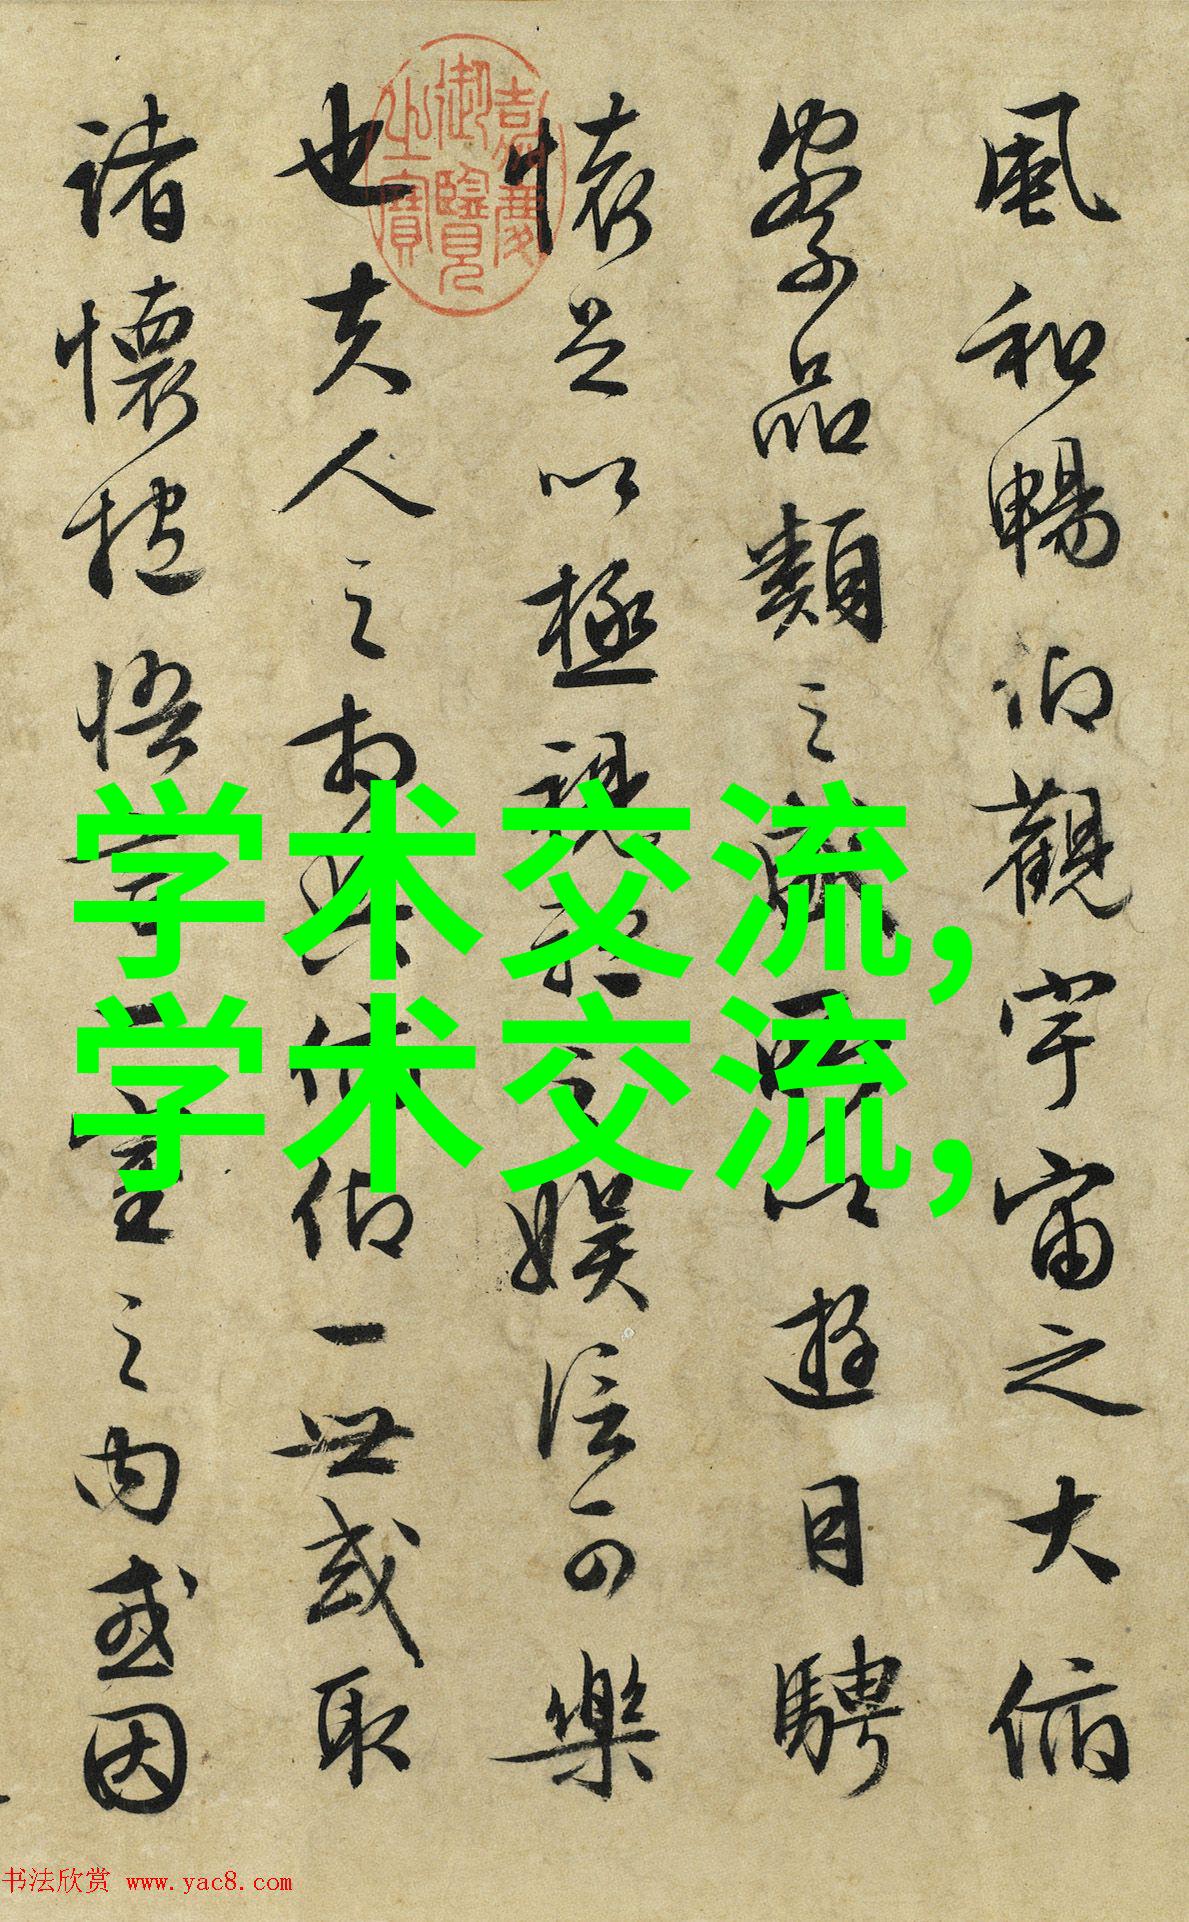 風和暢仰觀宇宙之大俯
察品類之盛所以遊目騁
懷足以極視聽之娛信可樂
也夫人之相與俯仰一世或取
諸懷抱悟言一室之內或因
嘉慶御覽之寶
学术交流,
学术交流,
书法欣赏 www.yac8.com